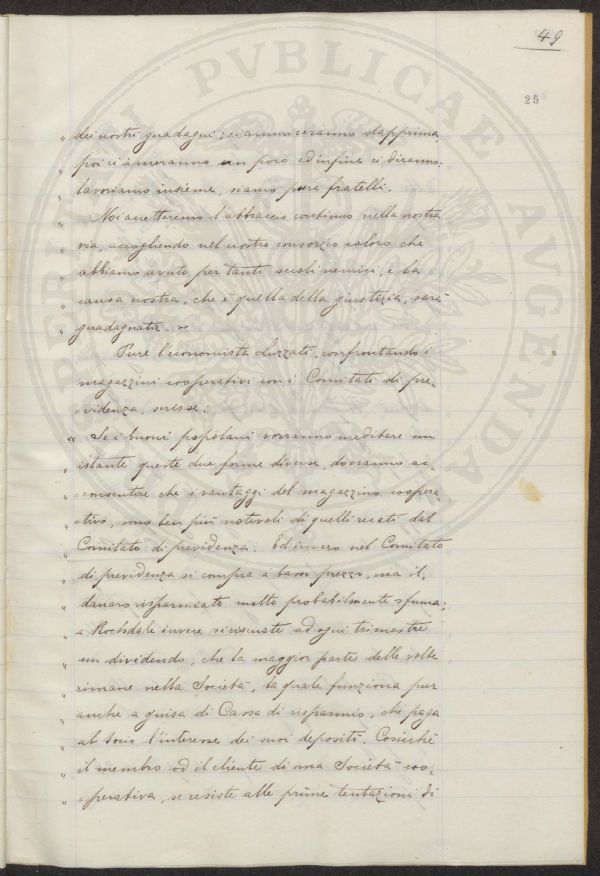 49
25
" dei nostri guadagni; ci ammireranno dapprima,
" poi ci ameranno un poco ed infine ci diranno:
" lavoriamo insieme, siamo pure fratelli.
" Noi accetteremo l'abbraccio continuo nella nostra
" via, accogliendo nel nostro consorzio coloro che
" abbiamo avuto per tanti secoli nemici, e la
" causa nostra, che è quella della giustizia, sarà
" guadagnata. »
Pure l'economista Luzzati, confrontando i
magazzini cooperativi con i Comitati di pre-
-videnza, scrisse:
« Se i buoni popolani vorranno meditare un
" istante queste due forme diverse, dovranno ac-
" -consentire che i vantaggi del magazzino coopera-
" -tivo, sono ben più notevoli di quelli recati dal
" Comitato di previdenza. Ed invero nel Comitato
" di previdenza si compra a basso prezzo, ma il
" danaro risparmiato molto probabilmente sfuma;
" a Rochdale invece si riscuote ad ogni trimestre
" un dividendo, che la maggior parte delle volte
" rimane nella Società, la quale funziona pur
" anche a guisa di Cassa di risparmio, che paga
" al socio l'interesse dei suoi depositi. Cosicchè
" il membro od il cliente di una Società coo-
" -perativa, se resiste alle prime tentazioni di
PVBLICAE AVGENDAE